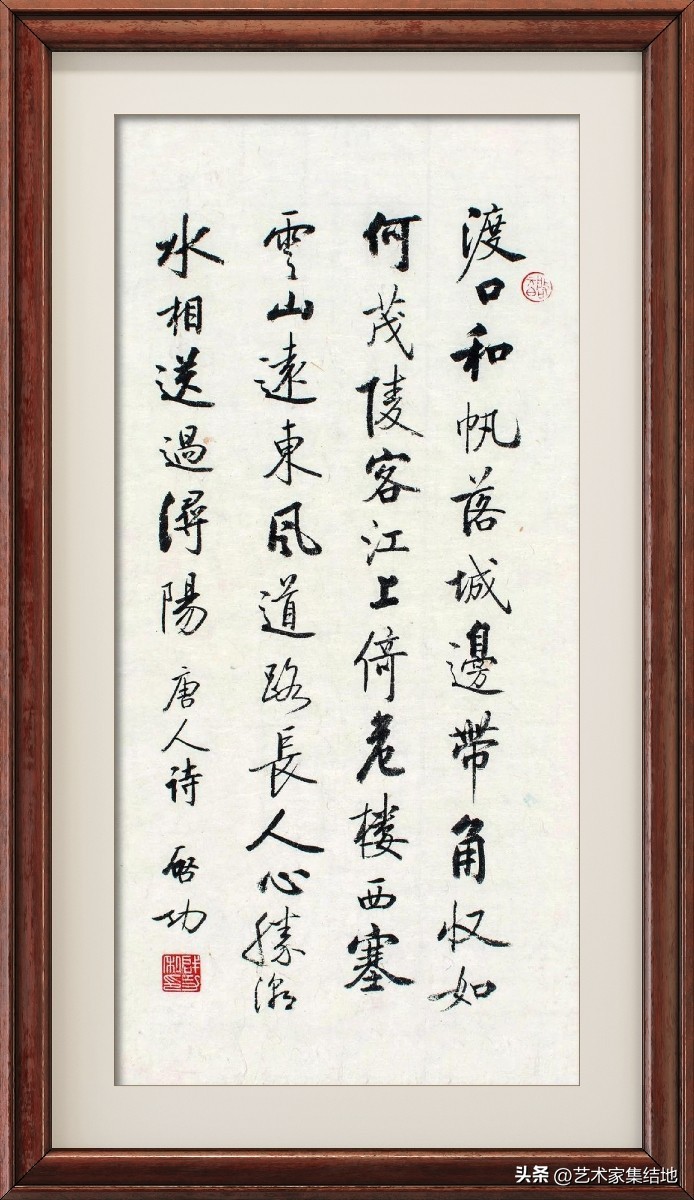 渡口和帆落城邊帶角收如
何茂陵客江上倚危楼西塞
雲山遠東風道路長人心勝潮
水相送過潯陽 唐人詩 啓功
头条 @艺术家集结地